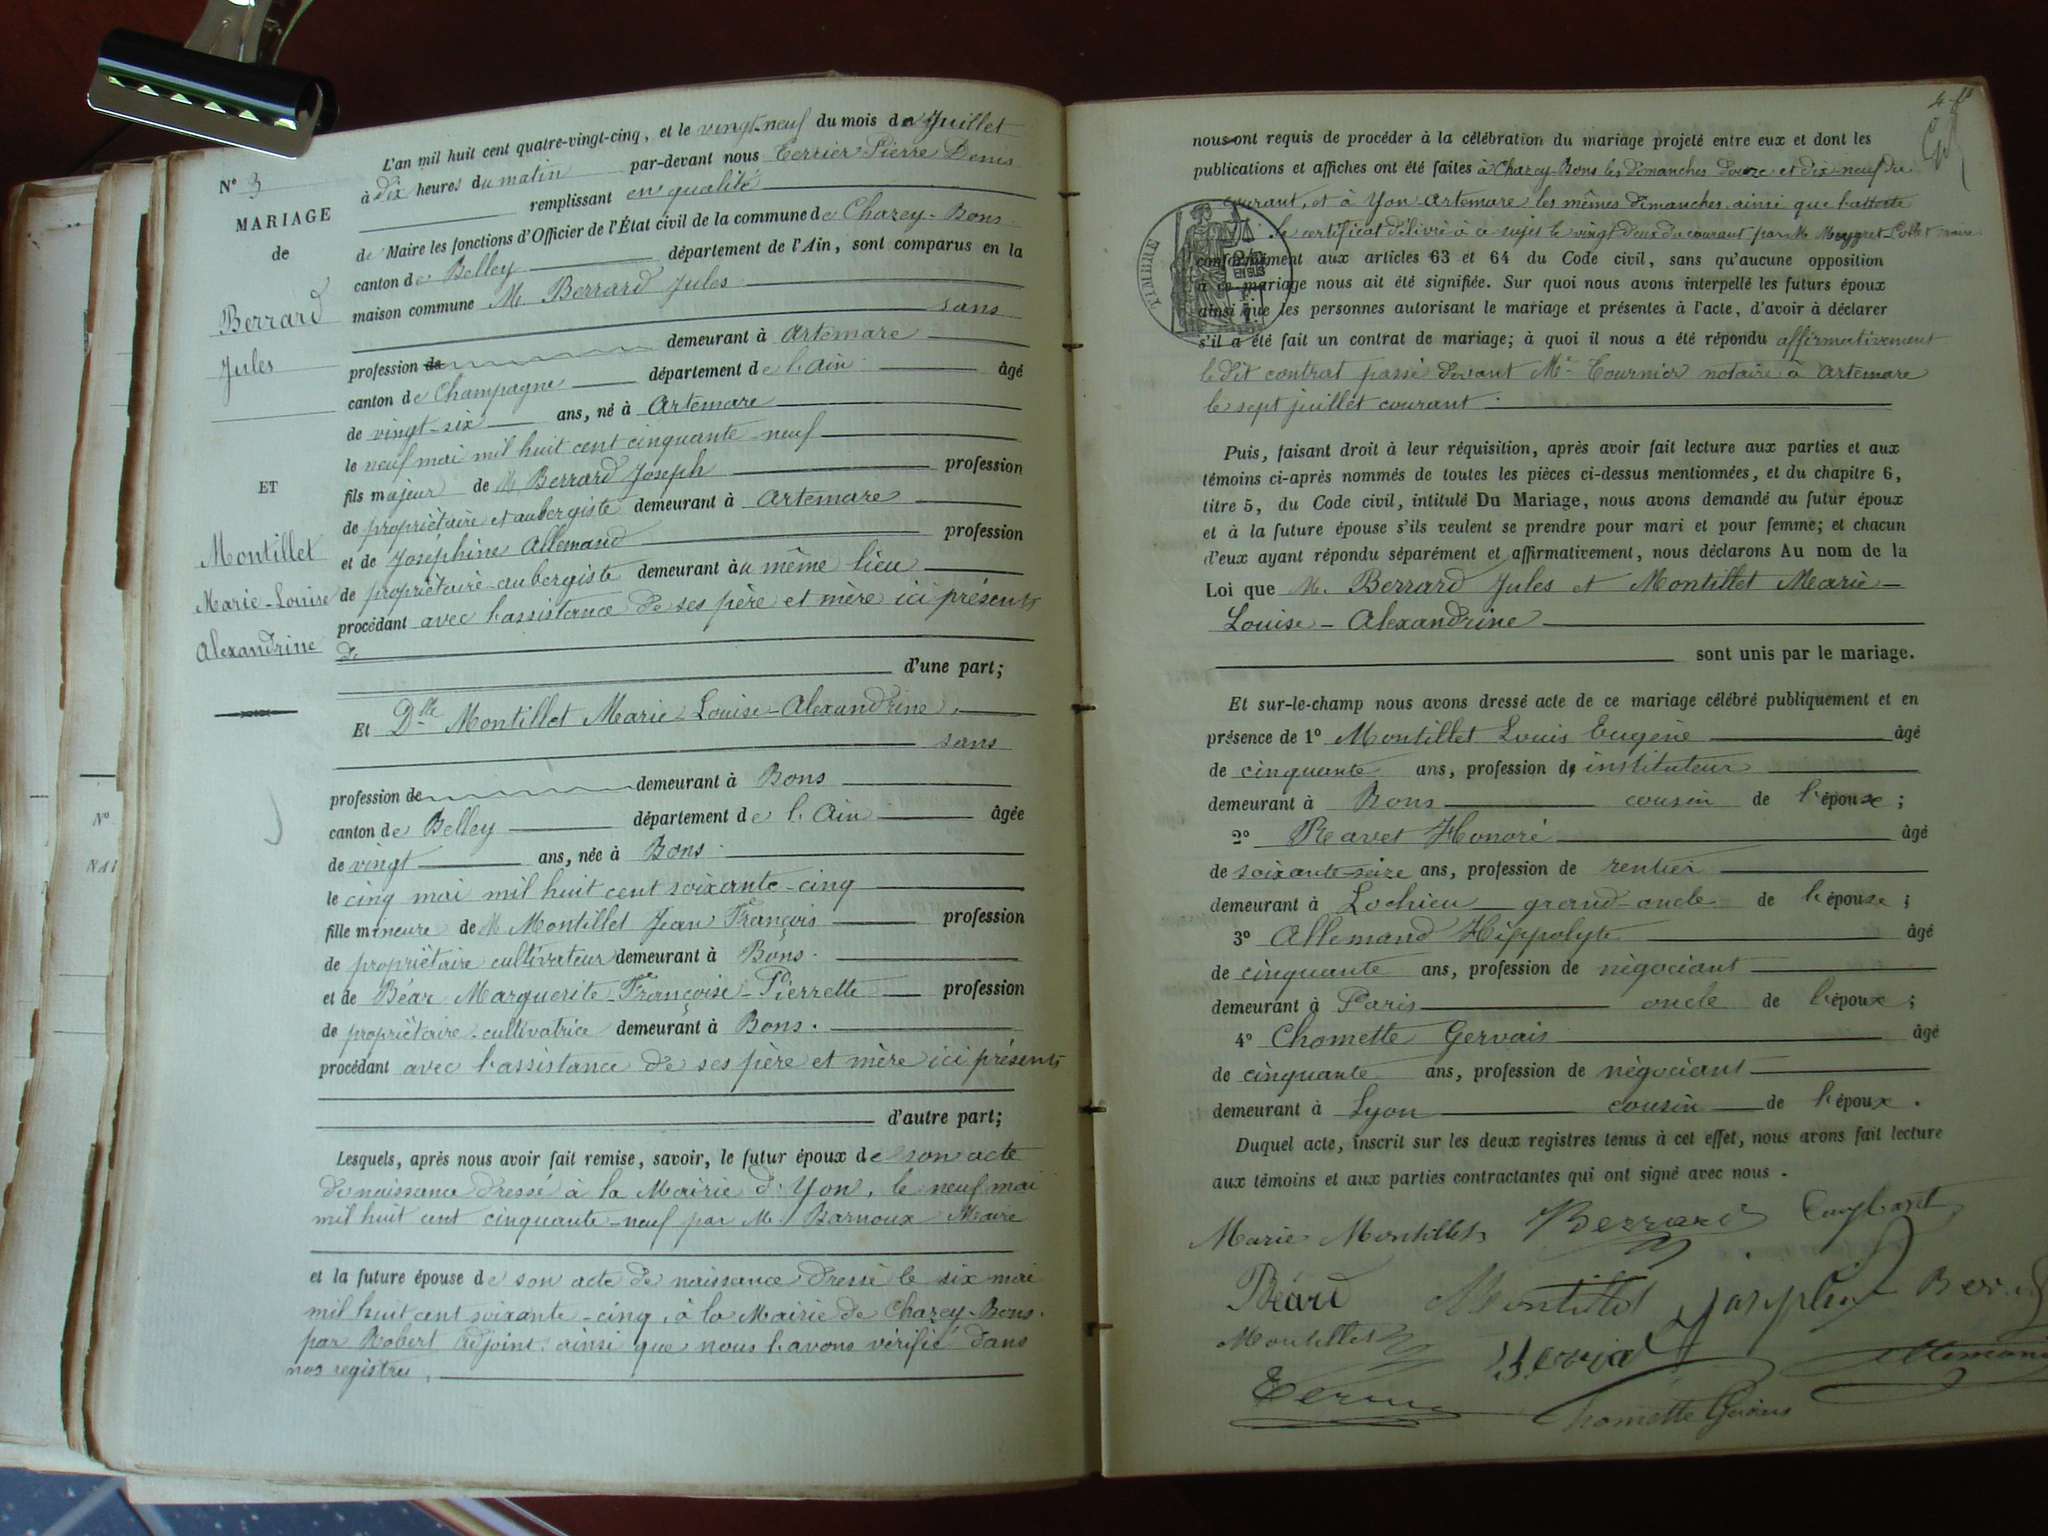 N° 3
MARIAGE
de
Berrard
Jules
ET
Montillet
Marie-Louise
Alexandrine
L'an mil huit cent quatre-vingt-cinq, et le vingt-neuf du mois de Juillet
à dix heures du matin par-devant nous Terrier Pierre Denis
remplissant en qualité
de Maire les fonctions d'Officier de l'État civil de la commune de Chazey-Bons
canton de Belley département de l'Ain, sont comparus en la
maison commune M. Berrard Jules
sans
profession de demeurant à Artemare
canton de Champagne département de l'Ain âgé
de vingt-six ans, né à Artemare
le neuf mai mil huit cent cinquante-neuf
fils majeur de M. Berrard Joseph profession
de propriétaire et aubergiste demeurant à Artemare
et de Joséphine Allemand profession
de propriétaire-aubergiste demeurant au même lieu
procédant avec l'assistance de ses père et mère ici présents
d'une part;
Et Dlle Montillet Marie-Louise-Alexandrine,
sans
profession de demeurant à Bons
canton de Belley département de l'Ain âgée
de vingt ans, née à Bons
le cinq mai mil huit cent soixante-cinq
fille mineure de M. Montillet Jean François profession
de propriétaire cultivateur demeurant à Bons
et de Béar Marguerite-Françoise-Pierrette profession
de propriétaire-cultivatrice demeurant à Bons.
procédant avec l'assistance de ses père et mère ici présents
d'autre part;
Lesquels, après nous avoir fait remise, savoir, le futur époux de son acte
de naissance dressé à la Mairie d'Yon, le neuf mai
mil huit cent cinquante-neuf par M. Barnoux Maire
et la future épouse de son acte de naissance dressé le six mai
mil huit cent soixante-cinq, à la Mairie de Chazey-Bons.
par Robert Adjoint. ainsi que nous l'avons vérifié dans
nos registres.
N°
nous ont requis de procéder à la célébration du mariage projeté entre eux et dont les
publications et affiches ont été faites à Chazey-Bons les dimanches douze et dix-neuf du
courant, et à Yon-Artemare les mêmes dimanches. ainsi que l'atteste
le certificat délivré à ce sujet le vingt deux du courant par M. maire
TIMBRE
EN SUS
conformément aux articles 63 et 64 du Code civil, sans qu'aucune opposition
à ce mariage nous ait été signifiée. Sur quoi nous avons interpellé les futurs époux
ainsi que les personnes autorisant le mariage et présentes à l'acte, d'avoir à déclarer
s'il a été fait un contrat de mariage; à quoi il nous a été répondu affirmativement
le dit contrat passé devant Me Tournier notaire à Artemare
le sept juillet courant.
Puis, faisant droit à leur réquisition, après avoir fait lecture aux parties et aux
témoins ci-après nommés de toutes les pièces ci-dessus mentionnées, et du chapitre 6,
titre 5, du Code civil, intitulé Du Mariage, nous avons demandé au futur époux
et à la future épouse s'ils veulent se prendre pour mari et pour femme; et chacun
d'eux ayant répondu séparément et affirmativement, nous déclarons Au nom de la
Loi que M. Berrard Jules et Montillet Marie-
Louise-Alexandrine
sont unis par le mariage.
Et sur-le-champ nous avons dressé acte de ce mariage célébré publiquement et en
présence de 1° Montillet Louis Eugène âgé
de cinquante ans, profession de instituteur
demeurant à Bons cousin de l'épouse;
2° Ravet Honoré âgé
de soixante-seize ans, profession de rentier
demeurant à Lochieu grand-oncle de l'épouse;
3° Allemand Hippolyte âgé
de cinquante ans, profession de négociant
demeurant à Paris oncle de l'époux;
4° Chomette Gervais âgé
de cinquante ans, profession de négociant
demeurant à Lyon cousin de l'époux.
Duquel acte, inscrit sur les deux registres tenus à cet effet, nous avons fait lecture
aux témoins et aux parties contractantes qui ont signé avec nous.
Marie Montillet Berrard
Béard Montillet Joséphine
Montillet
Allemand
Chomette Gervais